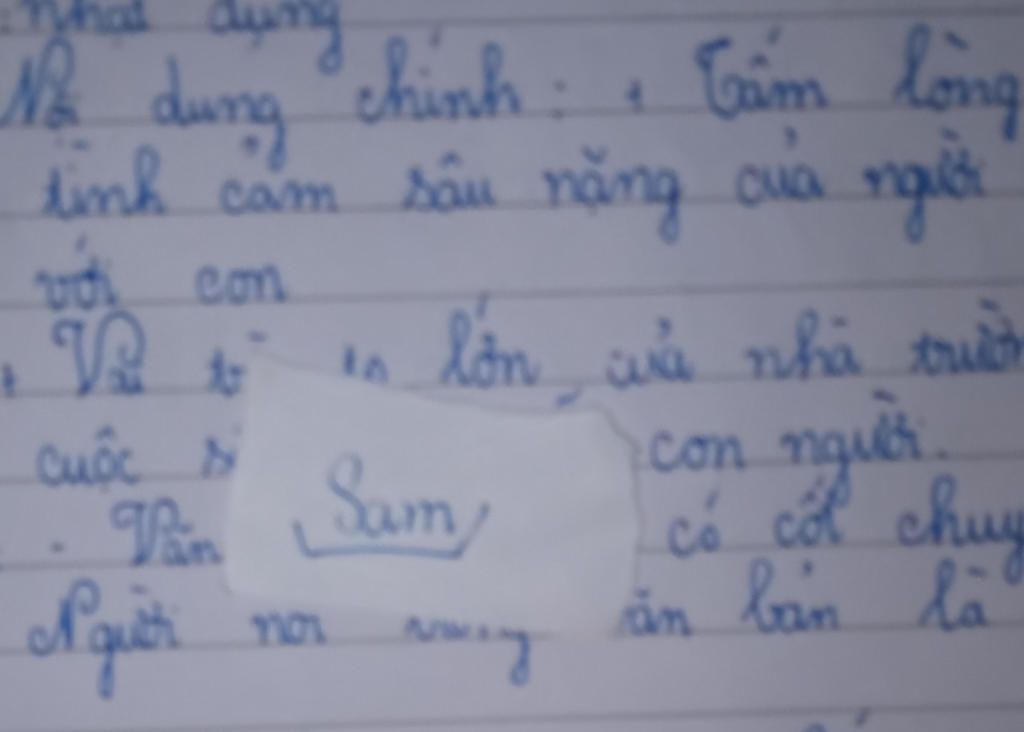 nhật dụng
Nội dung chính : + Tấm lòng
tình cảm sâu nặng của người
với con
+ Vai lớn của nhà trườn
cuộc con người.
Sam
- Văn có cốt chuy
Người nói ăn bản là